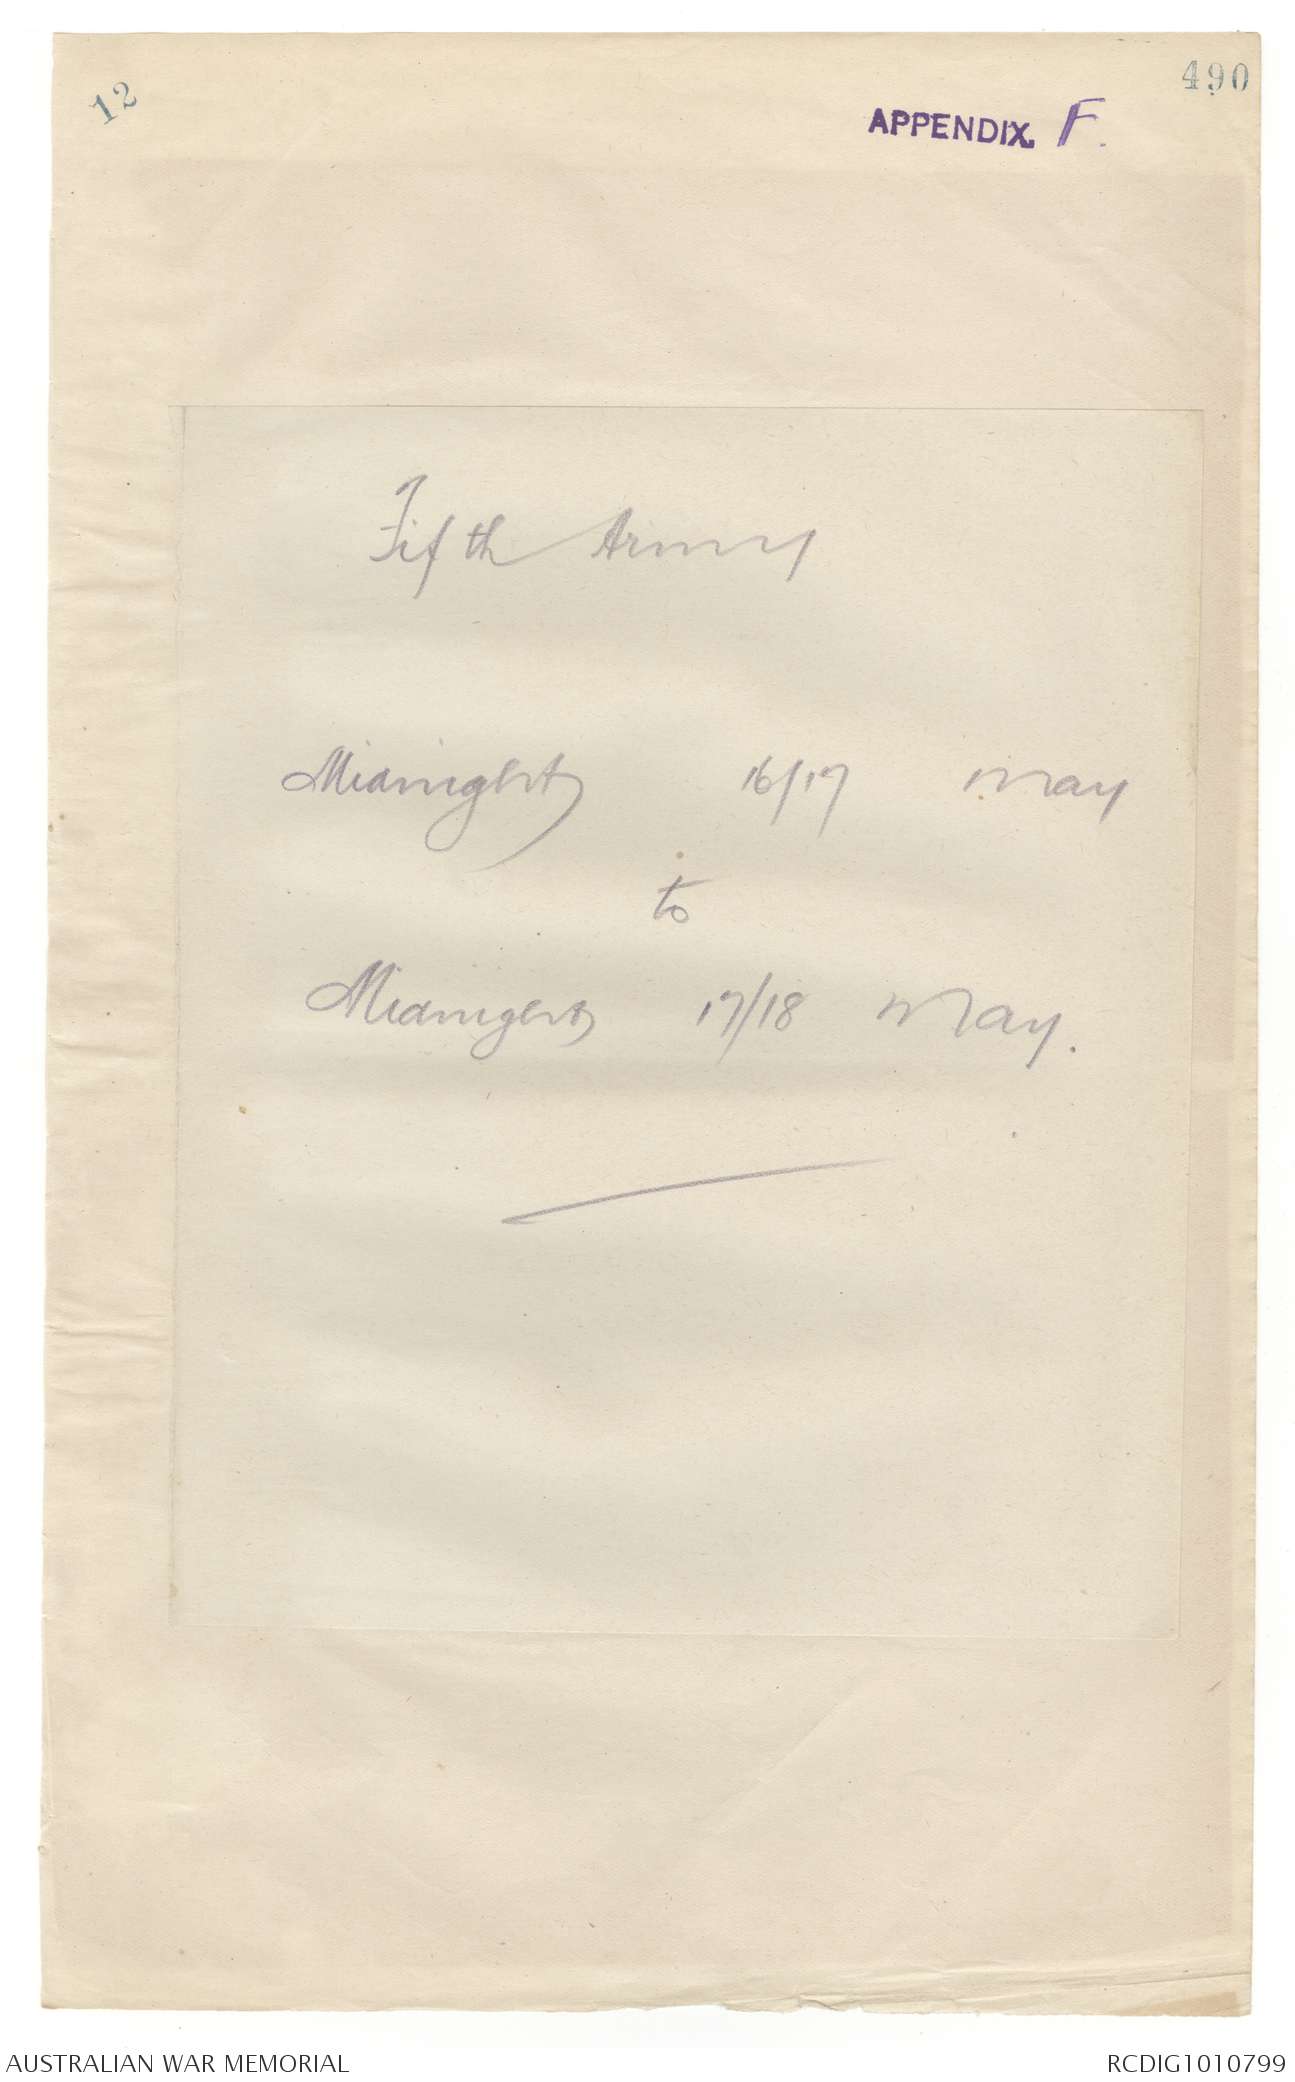 12
490
APPENDIX. F.
Fifth Army
Midnight 16/17 May
to
Midnight 17/18 May.
AUSTRALIAN WAR MEMORIAL
RCDIG1010799